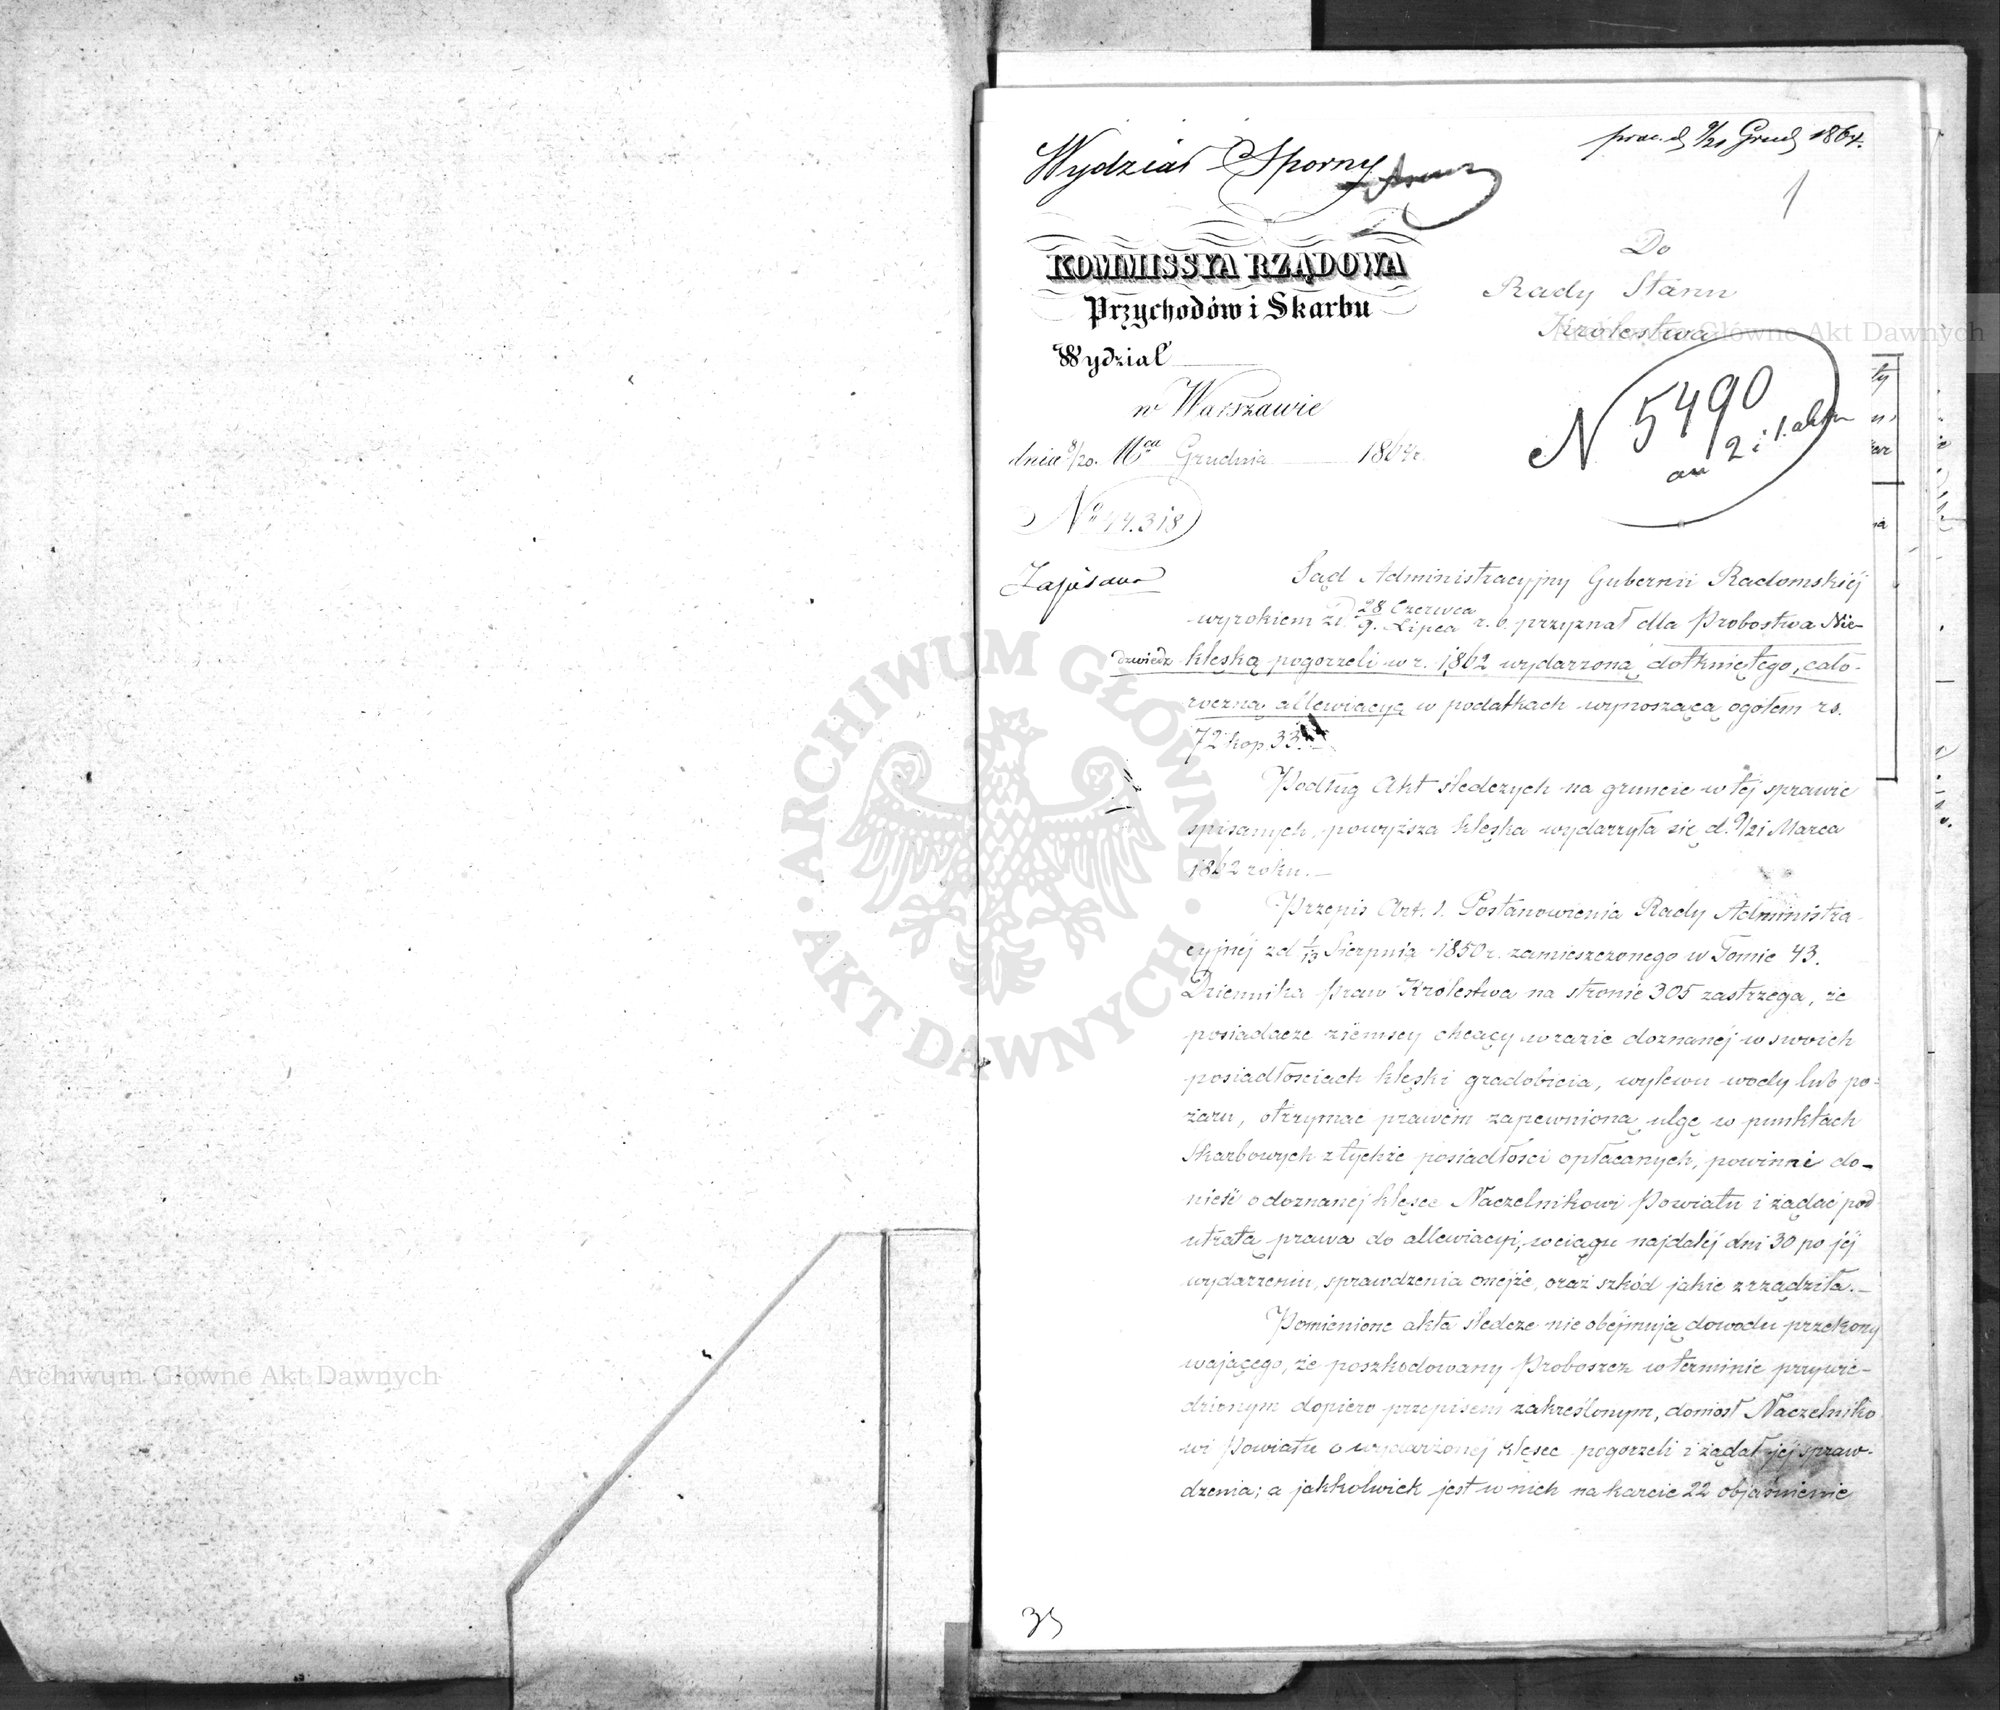 Wydział Sporny
prez. d 9/21 Grud 1864.
1
KOMMISSYA RZĄDOWA
Przychodów i Skarbu
Wydział
w Warszawie
dnia 8/20. Mca Grudnia 1864 r.
No 44.318
Do
Rady Stanu
Królestwa
N 5490
an 2 i 1. aktu
Zapisano
Sąd Administracyjny Gubernii Radomskiéj
wyrokiem z d. 28 Czerwca / 9. Lipca r. b. przyznał dla Probostwa Nie-
dzwiedz klęską pogorzeli w r. 1862 wydarzoną dotkniętego, cało-
roczną allewiacyą w podatkach wynoszącą ogółem rs.
72 kop. 33.
Podług Akt śledczych na gruncie w téj sprawie
spisanych, powyższa klęska wydarzyła się d. 9/21 Marca
1862 roku. —
Przepis Art. 1. Postanowienia Rady Administra-
cyjnéj z d 1/13 Sierpnia 1850 r. zamieszczonego w Tomie 43.
Dziennika Praw Królestwa na stronie 305 zastrzega, że
posiadacze ziemscy chcący w razie doznanéj w swoich
posiadłościach klęski gradobicia, wylewu wody lub po-
żaru, otrzymać prawem zapewnioną ulgę w punktach
Skarbowych z tychże posiadłości opłacanych, powinni do-
nieść o doznanej klęsce Naczelnikowi Powiatu i żądać pod
utratą prawa do allewiacyi, w ciągu najdaléj dni 30 po jéj
wydarzeniu, sprawdzenia onéjże, oraz szkód jakie zrządziła. —
Pomienione akta śledcze nie obejmują dowodu przekony
wającego, że poszkodowany Proboszcz w terminie przywie-
dzionym dopiero przepisem zakreślonym, doniosł Naczelniko
wi Powiatu o wydarzonéj klęsce pogorzeli i żądał jéj spraw-
dzenia; a jakkolwiek jest w nich na karcie 22 objaśnienie
Archiwum Główne Akt Dawnych
ARCHIWUM GŁÓWNE AKT DAWNYCH
Archiwum Główne Akt Dawnych